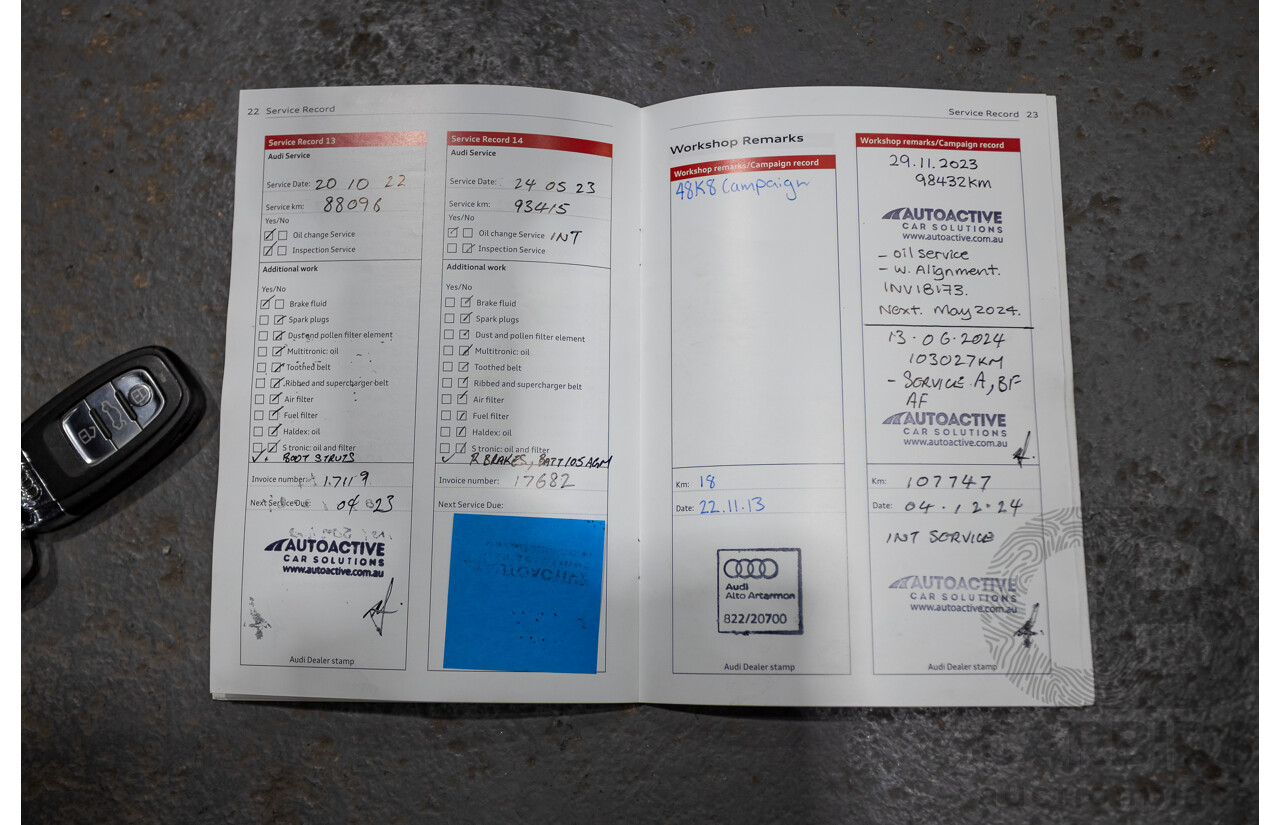 22 Service Record
Service Record 13
Audi Service
Service Date: 20 10 22
Service km: 88096
Yes/No
Oil change Service
Inspection Service
Additional work
Yes/No
Brake fluid
Spark plugs
Dust and pollen filter element
Multitronic: oil
Toothed belt
Ribbed and supercharger belt
Air filter
Fuel filter
Haldex: oil
S tronic: oil and filter
BOOT STRUTS
Invoice number: 17119
Next Service Due: 04 23
AUTOACTIVE
CAR SOLUTIONS
www.autoactive.com.au
Audi Dealer stamp
Service Record 14
Audi Service
Service Date: 24 05 23
Service km: 93415
Yes/No
Oil change Service INT
Inspection Service
Additional work
Yes/No
Brake fluid
Spark plugs
Dust and pollen filter element
Multitronic: oil
Toothed belt
Ribbed and supercharger belt
Air filter
Fuel filter
Haldex: oil
S tronic: oil and filter
R BRAKES, BATT 105 AGM
Invoice number: 17682
Next Service Due:
Service Record 23
Workshop Remarks
Workshop remarks/Campaign record
48K8 Campaign
Km: 18
Date: 22.11.13
Audi
Alto Artarmon
822/20700
Audi Dealer stamp
Workshop remarks/Campaign record
29.11.2023
98432km
AUTOACTIVE
CAR SOLUTIONS
www.autoactive.com.au
- oil service
- w. Alignment.
INV18173.
Next. May 2024.
13.06.2024
103027KM
- SERVICE A, BF
AF
AUTOACTIVE
CAR SOLUTIONS
www.autoactive.com.au
Km: 107747
Date: 04.12.24
INT SERVICE
AUTOACTIVE
CAR SOLUTIONS
www.autoactive.com.au
Audi Dealer stamp